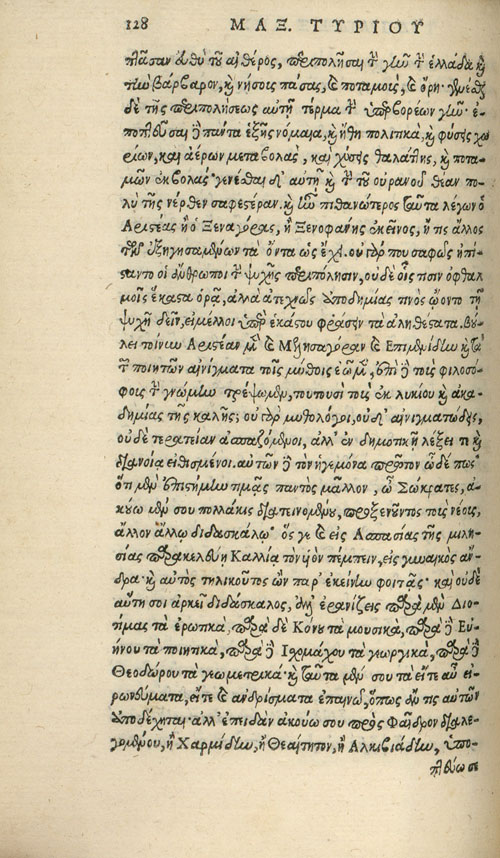 128 ΜΑΞ. ΤΥΡΙΟΥ
πᾶσαν εὐθὺ τοῦ αἰθέρος, περιπολῆσαι τὴν γῆν τὴν ἑλλάδα καὶ
τὴν βάρβαρον, καὶ νήσους πάσας, καὶ ποταμοὺς, καὶ ὄρη· γενέσθαι
δὲ τῆς περιπολήσεως αὐτῇ τέρμα τὴν ὑπερβορέων γῆν· ἐ-
ποπτεῦσαι δὲ πάντα ἑξῆς νόμαια, καὶ ἤθη πολιτικὰ, καὶ φύσεις χω
ρίων, καὶ ἀέρων μεταβολὰς, καὶ χύσεις θαλάττης, καὶ ποτα-
μῶν ἐκβολάς· γενέσθαι δ' αὐτῇ καὶ τὴν τοῦ οὐρανοῦ θέαν πο-
λὺ τῆς νέρθεν σαφεστέραν. καὶ ἦν πιθανώτερος ταῦτα λέγων ὁ
Ἀριστέας ἢ ὁ Ξεναγόρας, ἢ Ξενοφάνης ἐκεῖνος, ἤ τις ἄλλος
τῶν ἐξηγησαμένων τὰ ὄντα ὡς ἔχει. οὐ γάρ που σαφῶς ἠπί-
σαντο οἱ ἄνθρωποι τὴν ψυχῆς περιπόλησιν, οὐδὲ οἷς τισιν ὀφθαλ
μοῖς ἕκαστα ὁρᾷ, ἀλλὰ ἀτεχνῶς ἀποδημίας τινὸς ᾤοντο τῇ
ψυχῇ δεῖν, εἰ μέλλοι ὑπὲρ ἑκάστου φράσειν τὰ ἀληθέστατα. βύ-
λει τοίνυν Ἀριστέαν μὲν καὶ Μελησαγόραν καὶ Ἐπιμενίδην καὶ τὰ
τῶν ποιητῶν αἰνίγματα τοῖς μύθοις ἐῶμεν, ἐπὶ δὲ τοὺς φιλοσό-
φους τὴν γνώμην τρέψωμεν, τουτουσὶ τοὺς ἐκ λυκίου καὶ ἀκα-
δημίας τῆς καλῆς; οὐ γὰρ μυθολόγοι, οὐδ' αἰνιγματώδεις,
οὐδὲ τερατείαν ἀσπαζόμενοι, ἀλλ' ἐν δημοτικῇ λέξει τε καὶ
διανοίᾳ εἰθισμένοι. αὐτῶν δὲ τὸν ἡγεμόνα πρῶτον ὧδέ πως·
ὅτι μὲν ἐπιστήμην τιμᾷς παντὸς μᾶλλον, ὦ Σώκρατες, ἀ-
κούω μέν σου πολλάκις διατεινομένου, προξενοῦντος τοὺς νέους,
ἄλλον ἄλλῳ διδασκάλῳ· ὅς γε καὶ εἰς Ἀσπασίας τῆς μιλη-
σίας παρακελεύῃ Καλλίᾳ τὸν υἱὸν πέμπειν, εἰς γυναικὸς ἄν-
δρα· καὶ αὐτὸς τηλικοῦτος ὢν παρ' ἐκείνην φοιτᾷς· καὶ οὐδὲ
αὕτη σοι ἀρκεῖ διδάσκαλος, ἀλλ' ἐρανίζεις παρὰ μὲν Διο-
τίμας τὰ ἐρωτικὰ, παρὰ δὲ Κόνου τὰ μουσικὰ, παρὰ δὲ Εὐ-
ήνου τὰ ποιητικὰ, παρὰ δὲ Ἰσχομάχου τὰ γεωργικὰ, παρὰ δὲ
Θεοδώρου τὰ γεωμετρικά· καὶ ταῦτα μέν σου τὰ εἴτε αὖ εἰ-
ρωνεύματα, εἴτε καὶ ἀνδρίσματα ἐπαινῶ, ὅπως ἄν τις αὐτῶν
ἀποδέχηται· ἀλλ' ἐπειδὰν ἀκούσω σου πρὸς Φαῖδρον διαλε-
γομένου, ἢ Χαρμίδην, ἢ Θεαίτητον, ἢ Ἀλκιβιάδην, ὑπο-
πτεύω σε